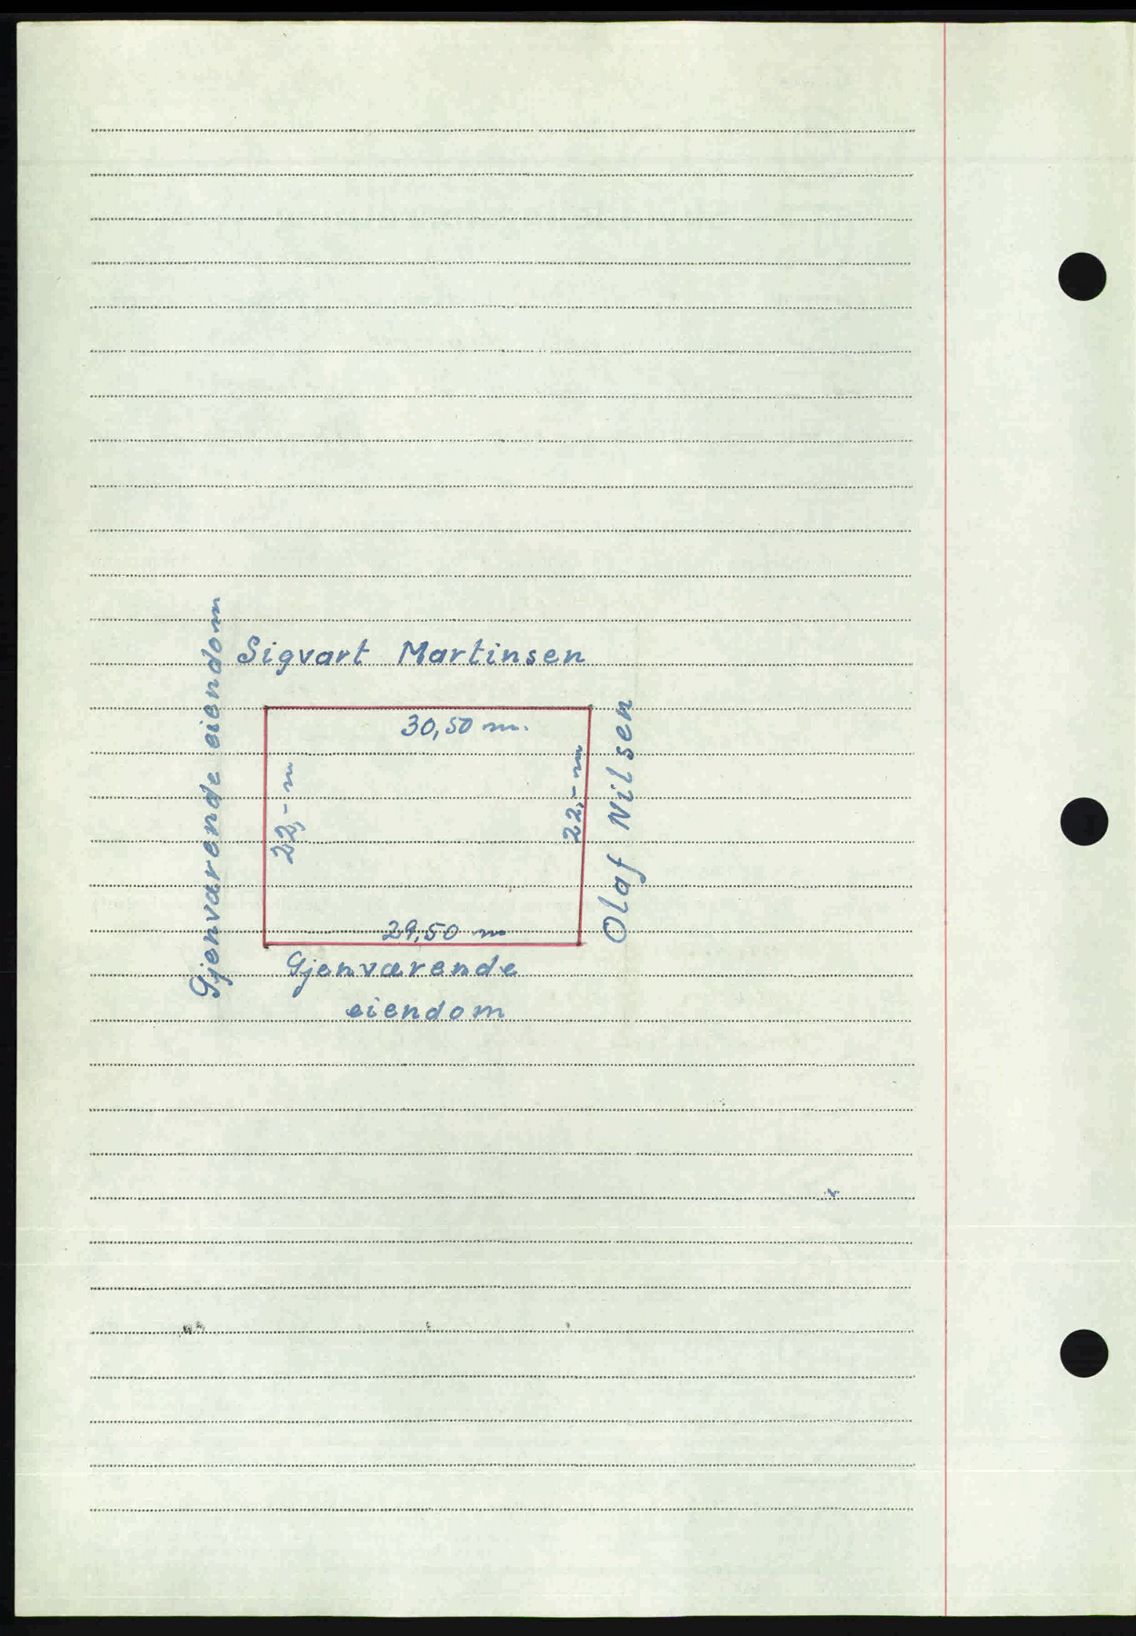 Sigvart Martinsen
Gjenværende eiendom
30,50 m.
22,- m
22,- m
Olaf Nilsen
29,50 m
Gjenværende
eiendom